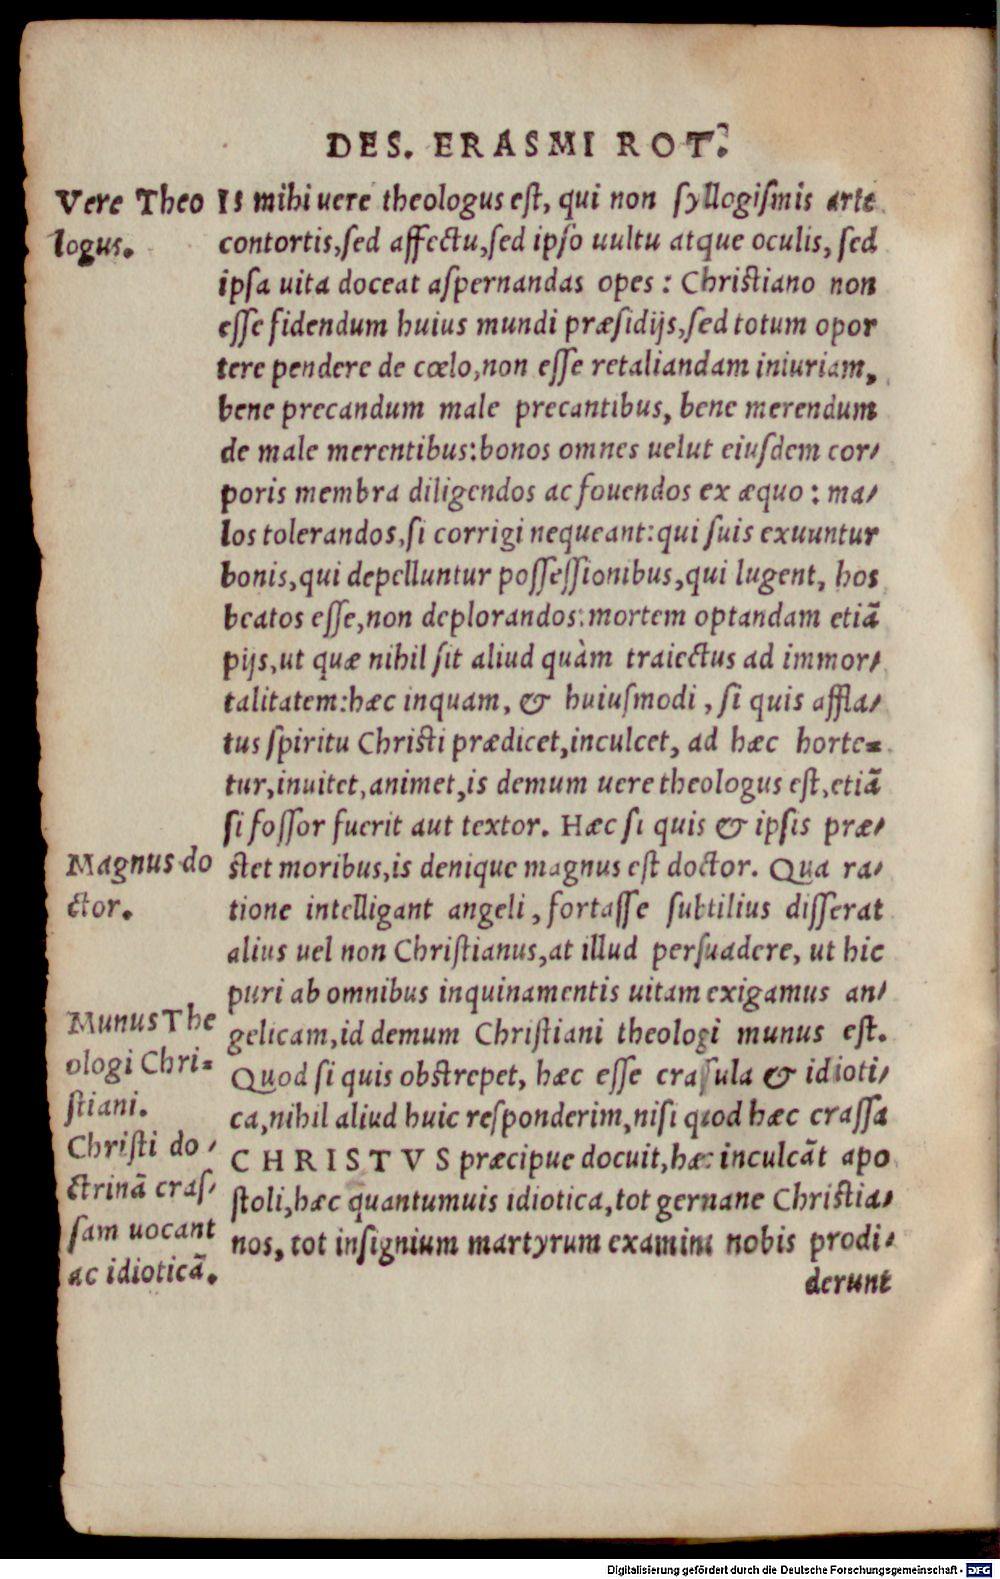 DES. ERASMI ROT.
Vere Theo
logus.
Is mihi uere theologus est, qui non syllogismis arte
contortis, sed affectu, sed ipso uultu atque oculis, sed
ipsa uita doceat aspernandas opes: Christiano non
esse fidendum huius mundi præsidijs, sed totum opor
tere pendere de cœlo, non esse retaliandam iniuriam,
bene precandum male precantibus, bene merendum
de male merentibus: bonos omnes uelut eiusdem cor/
poris membra diligendos ac fouendos ex æquo: ma/
los tolerandos, si corrigi nequeant: qui suis exuuntur
bonis, qui depelluntur possessionibus, qui lugent, hos
beatos esse, non deplorandos: mortem optandam etiã
pijs, ut quæ nihil sit aliud quàm traiectus ad immor/
talitatem: hæc inquam, & huiusmodi, si quis affla/
tus spiritu Christi prædicet, inculcet, ad hæc horte=
tur, inuitet, animet, is demum uere theologus est, etiã
si fossor fuerit aut textor. Hæc si quis & ipsis præ/
Magnus do
ctor.
stet moribus, is denique magnus est doctor. Qua ra/
tione intelligant angeli, fortasse subtilius disserat
alius uel non Christianus, at illud persuadere, ut hic
puri ab omnibus inquinamentis uitam exigamus an/
Munus The
ologi Chri=
stiani.
gelicam, id demum Christiani theologi munus est.
Quod si quis obstrepet, hæc esse crassula & idioti/
ca, nihil aliud huic responderim, nisi quod hæc crassa
Christi do/
ctrinã cras/
sam uocant
ac idioticã.
CHRISTVS præcipue docuit, hæc inculcãt apo
stoli, hæc quantumuis idiotica, tot germane Christia/
nos, tot insignium martyrum examina nobis prodi/
derunt
Digitalisierung gefördert durch die Deutsche Forschungsgemeinschaft - DFG